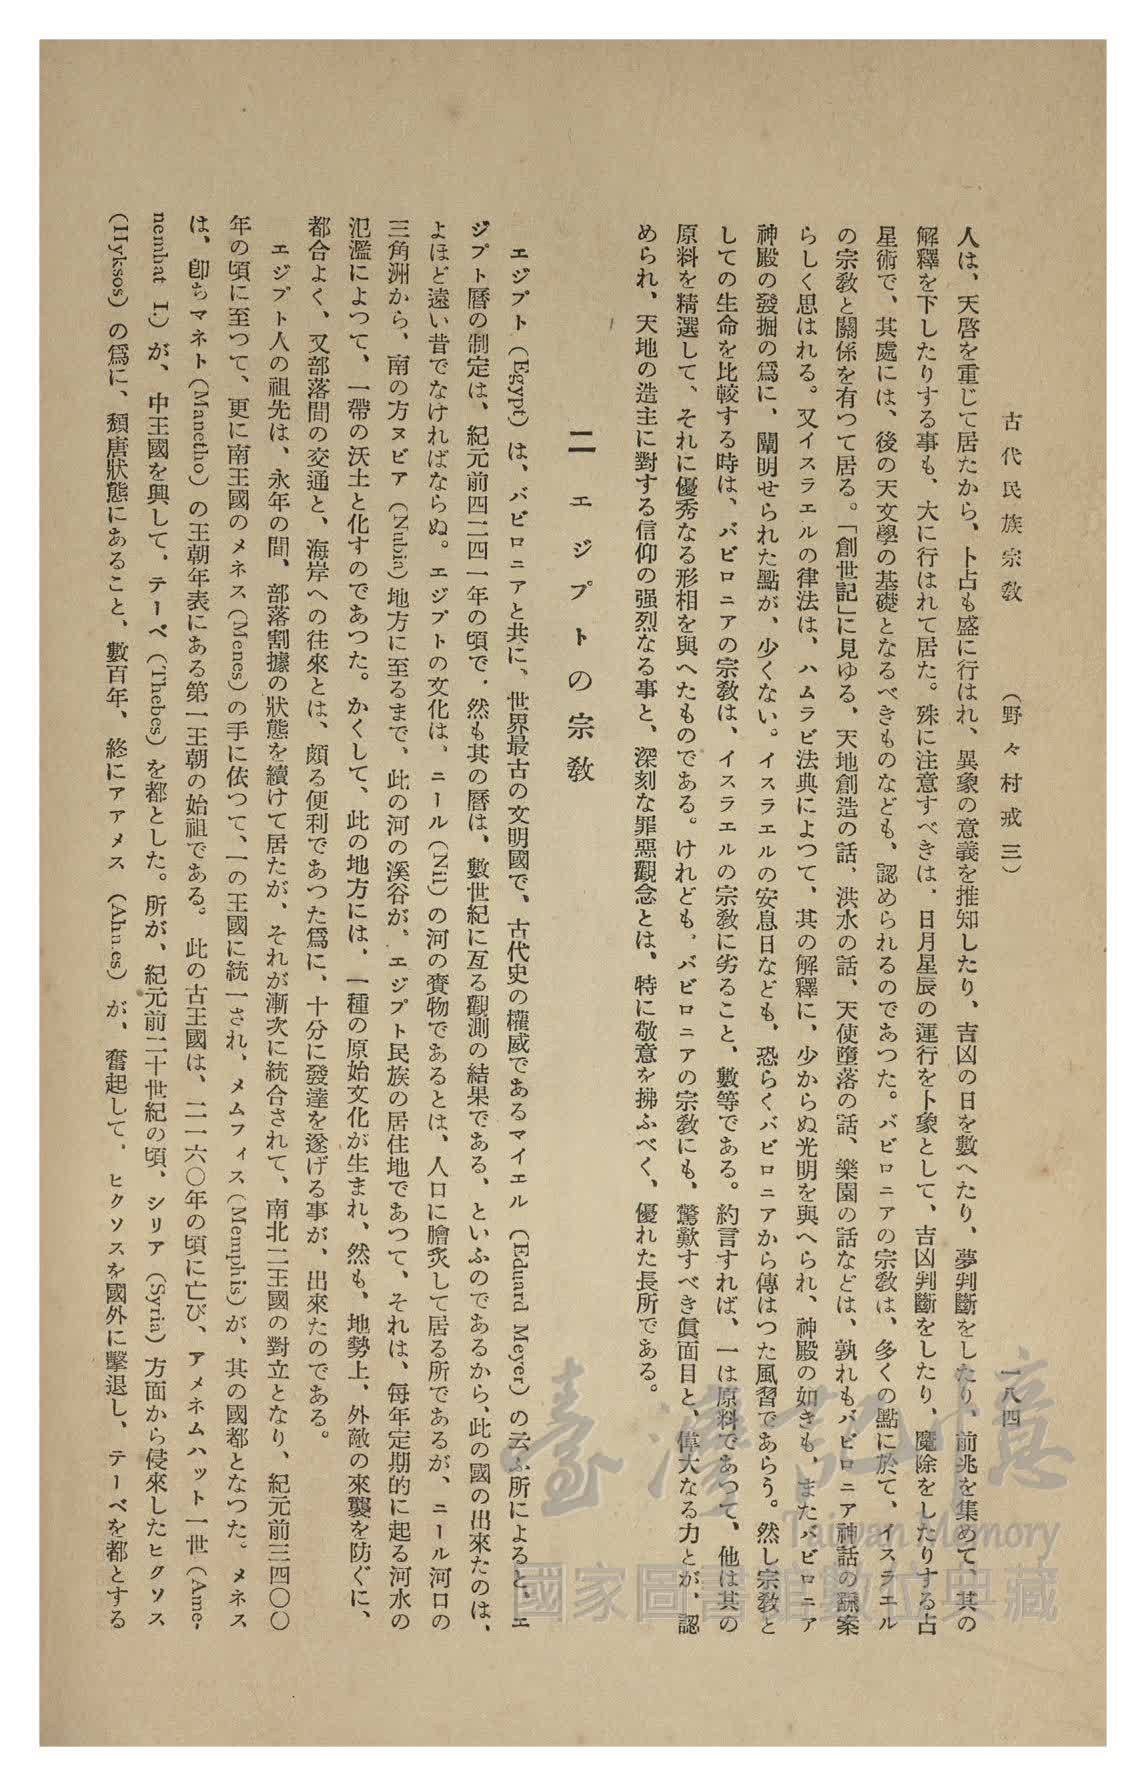 古代民族宗教　（野々村戒三）　一八四
人は、天啓を重じて居たから、卜占も盛に行はれ、異象の意義を推知したり、吉凶の日を數へたり、夢判斷をしたり、前兆を集めて、其の
解釋を下したりする事も、大に行はれて居た。殊に注意すべきは、日月星辰の運行を卜象として、吉凶判斷をしたり、魔除をしたりする占
星術で、其處には、後の天文學の基礎となるべきものなども、認められるのであつた。バビロニアの宗教は、多くの點に於て、イスラエル
の宗教と關係を有つて居る。「創世記」に見ゆる、天地創造の話、洪水の話、天使墮落の話、樂園の話などは、孰れもバビロニア神話の飜案
らしく思はれる。又イスラエルの律法は、ハムラビ法典によつて、其の解釋に、少からぬ光明を與へられ、神殿の如きも、またバビロニア
神殿の發掘の爲に、闡明せられた點が、少くない。イスラエルの安息日なども、恐らくバビロニアから傳はつた風習であらう。然し宗教と
しての生命を比較する時は、バビロニアの宗教は、イスラエルの宗教に劣ること、數等である。約言すれば、一は原料であつて、他は其の
原料を精選して、それに優秀なる形相を與へたものである。けれども、バビロニアの宗教にも、驚歎すべき眞面目と、偉大なる力とが、認
められ、天地の造主に對する信仰の强烈なる事と、深刻な罪惡觀念とは、特に敬意を拂ふべく、優れた長所である。
二　エジプトの宗教
エジプト（Egypt）は、バビロニアと共に、世界最古の文明國で、古代史の權威であるマイエル（Eduard Meyer）の云ふ所によると、エ
ジプト曆の制定は、紀元前四二四一年の頃で、然も其の曆は、數世紀に亙る觀測の結果である、といふのであるから、此の國の出來たのは、
よほど遠い昔でなければならぬ。エジプトの文化は、ニール（Nil.）の河の賚物であるとは、人口に膾炙して居る所であるが、ニール河口の
三角洲から、南の方ヌビア（Nubia）地方に至るまで、此の河の溪谷が、エジプト民族の居住地であつて、それは、每年定期的に起る河水の
氾濫によつて、一帶の沃土と化すのであつた。かくして、此の地方には、一種の原始文化が生まれ、然も、地勢上、外敵の來襲を防ぐに、
都合よく、又部落間の交通と、海岸への往來とは、頗る便利であつた爲に、十分に發達を遂げる事が、出來たのである。
エジプト人の祖先は、永年の間、部落割據の狀態を續けて居たが、それが漸次に統合されて、南北二王國の對立となり、紀元前三四〇〇
年の頃に至つて、更に南王國のメネス（Menes）の手に依つて、一の王國に統一され、メムフィス（Memphis）が、其の國都となつた。メネス
は、卽ちマネト（Manetho）の王朝年表にある第一王朝の始祖である。此の古王國は、二一六〇年の頃に亡び、アメネムハット一世（Ame-
nemhat I.）が、中王國を興して、テーベ（Thebes）を都とした。所が、紀元前二十世紀の頃、シリア（Syria）方面から侵來したヒクソス
（Hyksos）の爲に、頽唐狀態にあること、數百年、終にアアメス（Ahmes）が、奮起して、ヒクソスを國外に擊退し、テーベを都とする
臺灣記憶
Taiwan Memory
國家圖書館數位典藏